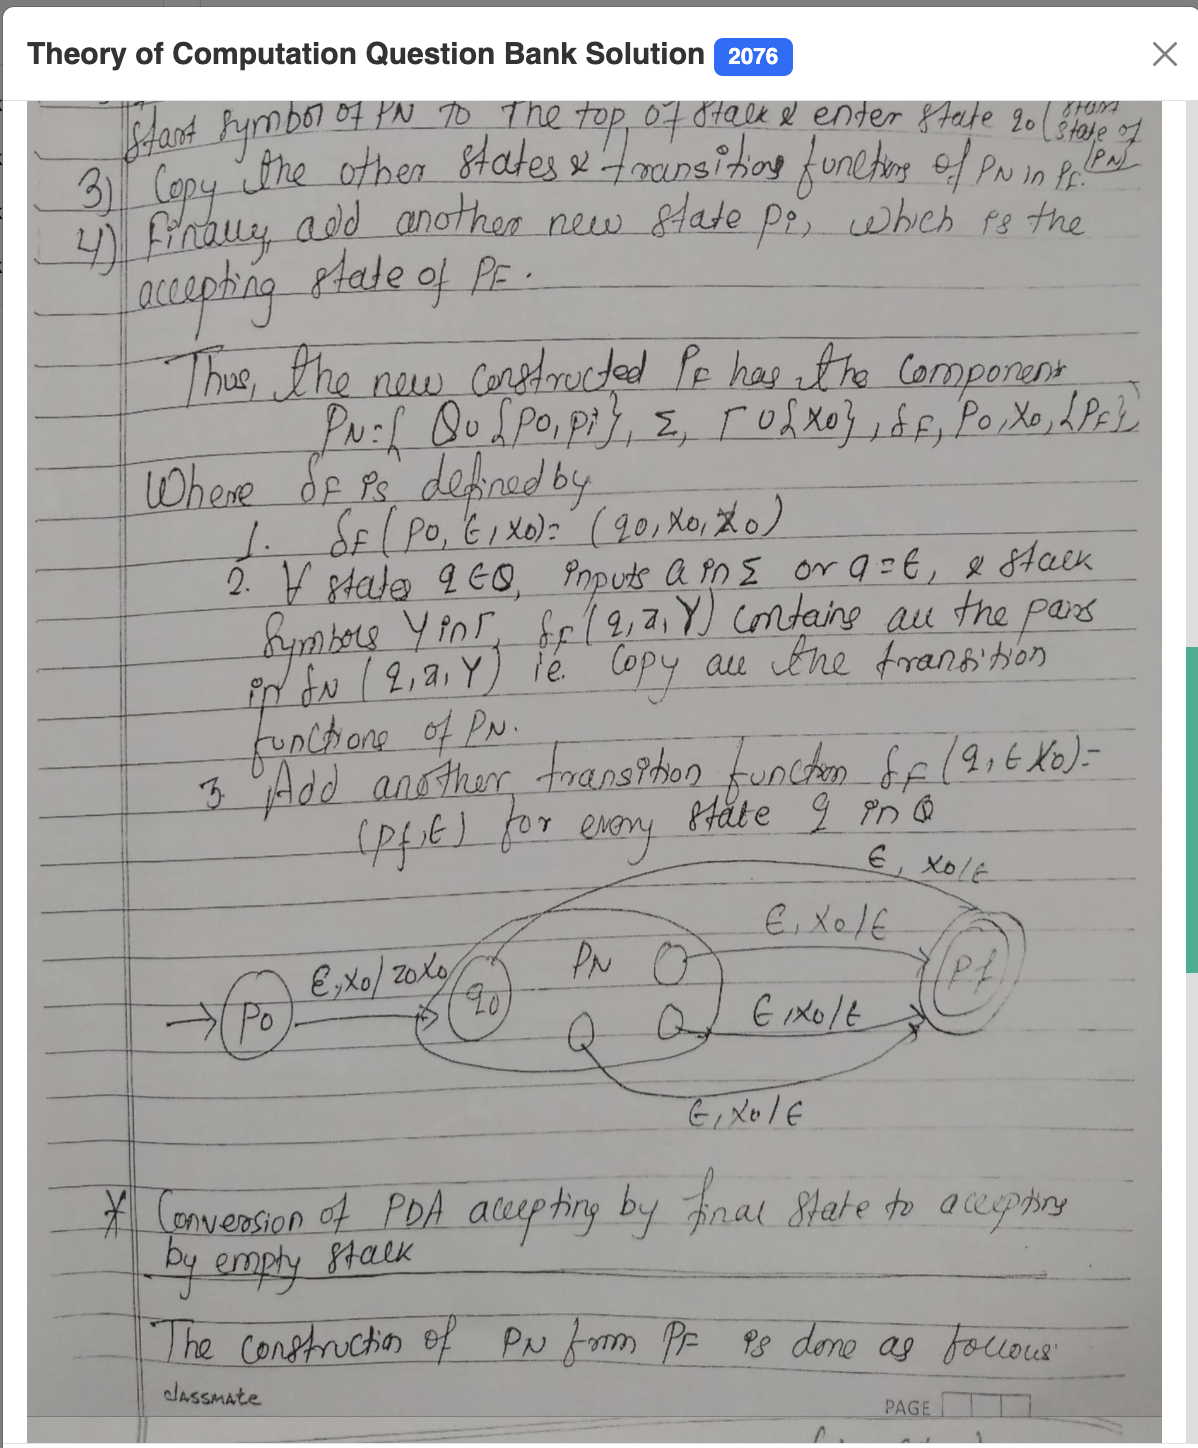 Theory of Computation Question Bank Solution 2076
Start symbol of PN to the top of stack & enter state q0 (start
state of
PN)
3) Copy the other states & transitions functions of PN in PF.
4) Finally, add another new state pi, which is the
accepting state of PF.
Thus, the new constructed PF has the component
PN = { Q∪{p0, pi}, Σ, Γ∪{X0}, δF, P0, X0, {PF}}
Where δF is defined by
1. δF(P0, ∈, X0) = (q0, X0, Z0)
2. ∀ states q∈Q, inputs a in Σ or a=∈, & stack
symbols Y in Γ, δF(q, a, Y) contains all the pairs
in δN (q, a, Y) ie. Copy all the transition
functions of PN.
3. Add another transition function δF(q, ∈ X0) =
(Pf, ∈) for every state q in Q
∈, X0/∈
∈, X0/∈
PN
Pf
∈, X0/Z0X0
q0
P0
∈, X0/∈
∈, X0/∈
* Conversion of PDA accepting by final state to accepting
by empty stack
The construction of PN from PF is done as follows
classmate
PAGE